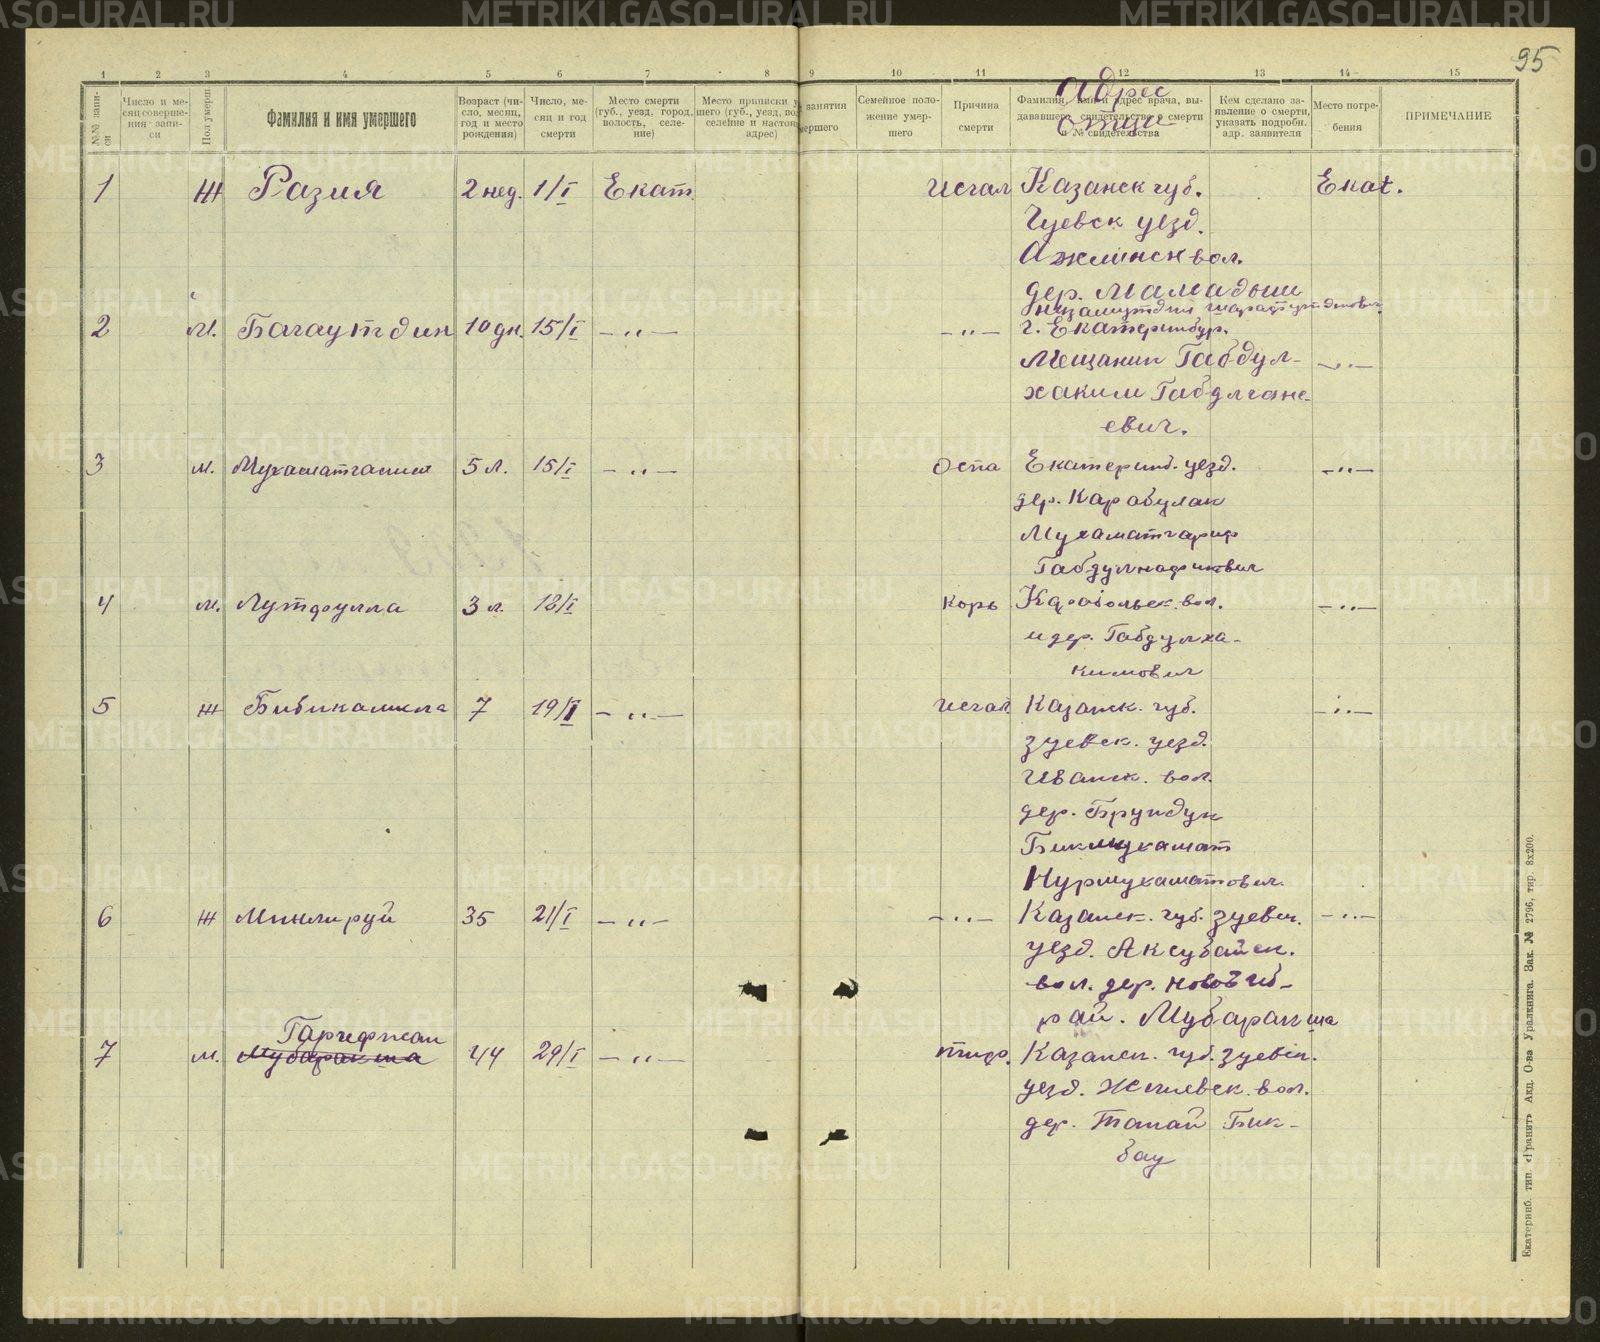 95
1 2 3 4 5 6 7 8 9 10 11 12 13 14 15
№№ запи-
си
Число и ме-
сяц соверше-
ния запи-
си
Пол умерш.
Фамилия и имя умершего
Возраст (чи-
сло, месяц,
год и место
рождения)
Число, ме-
сяц и год
смерти
Место смерти
(губ., уезд, город,
волость, селе-
ние)
Место приписки у
шего (губ., уезд, во
селение и настоя
адрес)
занятия
мершего
Семейное поло-
жение умер-
шего
Причина
смерти
Адрес
отца
Фамилия, имя и адрес врача, вы-
дававшего свидетельство о смерти
и № свидетельства
Кем сделано за-
явление о смерти,
указать подробн.
адр. заявителя
Место погре-
бения
ПРИМЕЧАНИЕ
1 Ж Разия 2 нед. 1/I Екат. Исгал Казанск губ. Екат.
Чуевск уезд.
Ажминск вол.
дер. Мамадыш
Низамутдин
2 М. Багаутдин 10 дн. 15/I – „ – – „ – г. Екатеринбур.
Мещанин Габдул- – „ –
хаким Габдлгане-
евич.
3 м. Мухаматгалим 5 л. 15/I – „ – оспа Екатеринб. уезд. – „ –
дер. Карабулак
Мухаматгариф
4 м. Лутфулла 3 л. 18/I корь вол. – „ –
и дер. Габдулха-
кимович
5 ж Бибикамила 7 19/I – „ – Исгал Казанск. губ. – „ –
Зуевск. уезд.
Иванск. вол.
дер. Брундук
Бикмухамат
Нурмухаматович.
6 ж Минлируй 35 21/I – „ – – „ – Казанск. губ. Зуевск. – „ –
уезд. Аксубаевск.
вол. дер. Новов Иб-
рай. Мубаракша
Гарифжан
7 м. Мубаракша 44 29/I – „ – тиф. Казанск. губ. Зуевск.
уезд. вол.
дер. Бик-
бау
Екатеринб. тип. «Гранит» Акц. О-ва Уралкнига. Зак. № 2796, тир. 8х200.
METRIKI.GASO-URAL.RU